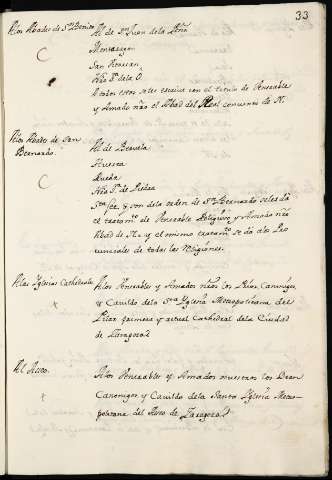 33
A los Abades de Sn Benito
C
Al de Sn Juan de la Peña
Montaragon
San Victorian
Nra Sra de la O
A todos estos se les escribe con el termino de Venerable
y Amado nro el Abad del Real convento de N.
A los Abades de San
Bernardo.
C
Al de Beruela
Huerta
Rueda
Nra Sra de Piedra
Santa Fee. y son de la orden de Sn Bernardo se les dà
el tratamto de Venerable Religioso y Amado nro
Abad de N. y el mismo tratamto se dà a los
vinciales de todas las Religiones.
A las Yglesias Cathedrales
†
A los Venerables y Amados nros los Dean Canonigos,
y Cavildo de la Sta Yglesia Metropolitana del
Pilar primera y actual Cathedral de la Ciudad
de Zaragoza
Al Aseo.
†
A los Venerables y Amados nuestros los Dean
Canonigos y Cavildo de la Santa Yglesia Metro-
politana del Aseo de Zaragoza